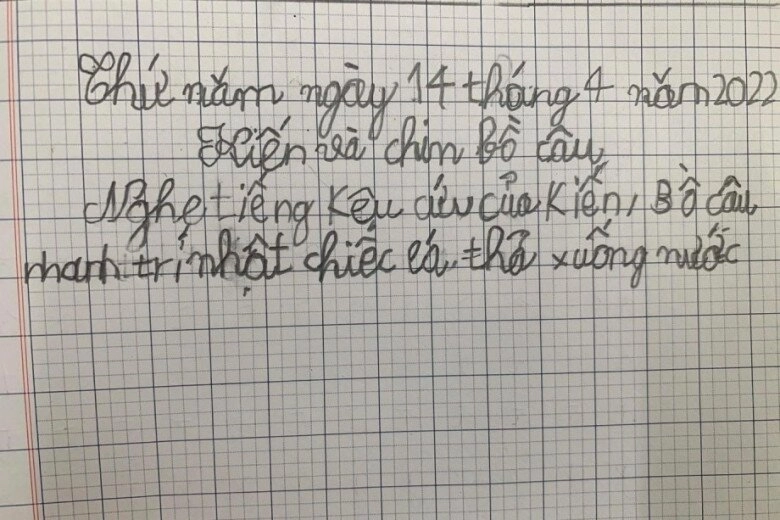 Thứ năm ngày 14 tháng 4 năm 2022
Kiến và chim Bồ câu
Nghe tiếng kêu cứu của Kiến, Bồ câu
nhanh trí nhặt chiếc lá thả xuống nước